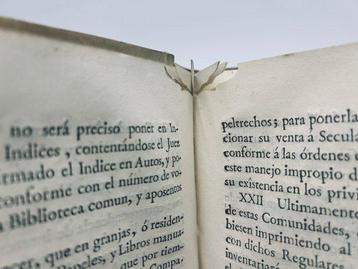 no será preciso poner en In-
Indices, contentándose el Juez
rmado el Indice en Autos, y po
conforme con el número de vo-
a Biblioteca comun, y aposentos
cer, que en granjas, ó residen-
Papeles, y Libros manua-
que por tiem-
Compa-
peltrechos; para ponerla
cionar su venta à Secula
conforme á las órdenes
este manejo impropio d
su existencia en los privi
XXII Ultimamen
de estas Comunidades,
biesen imprimiendo al
con dichos Regulares
inventariarán